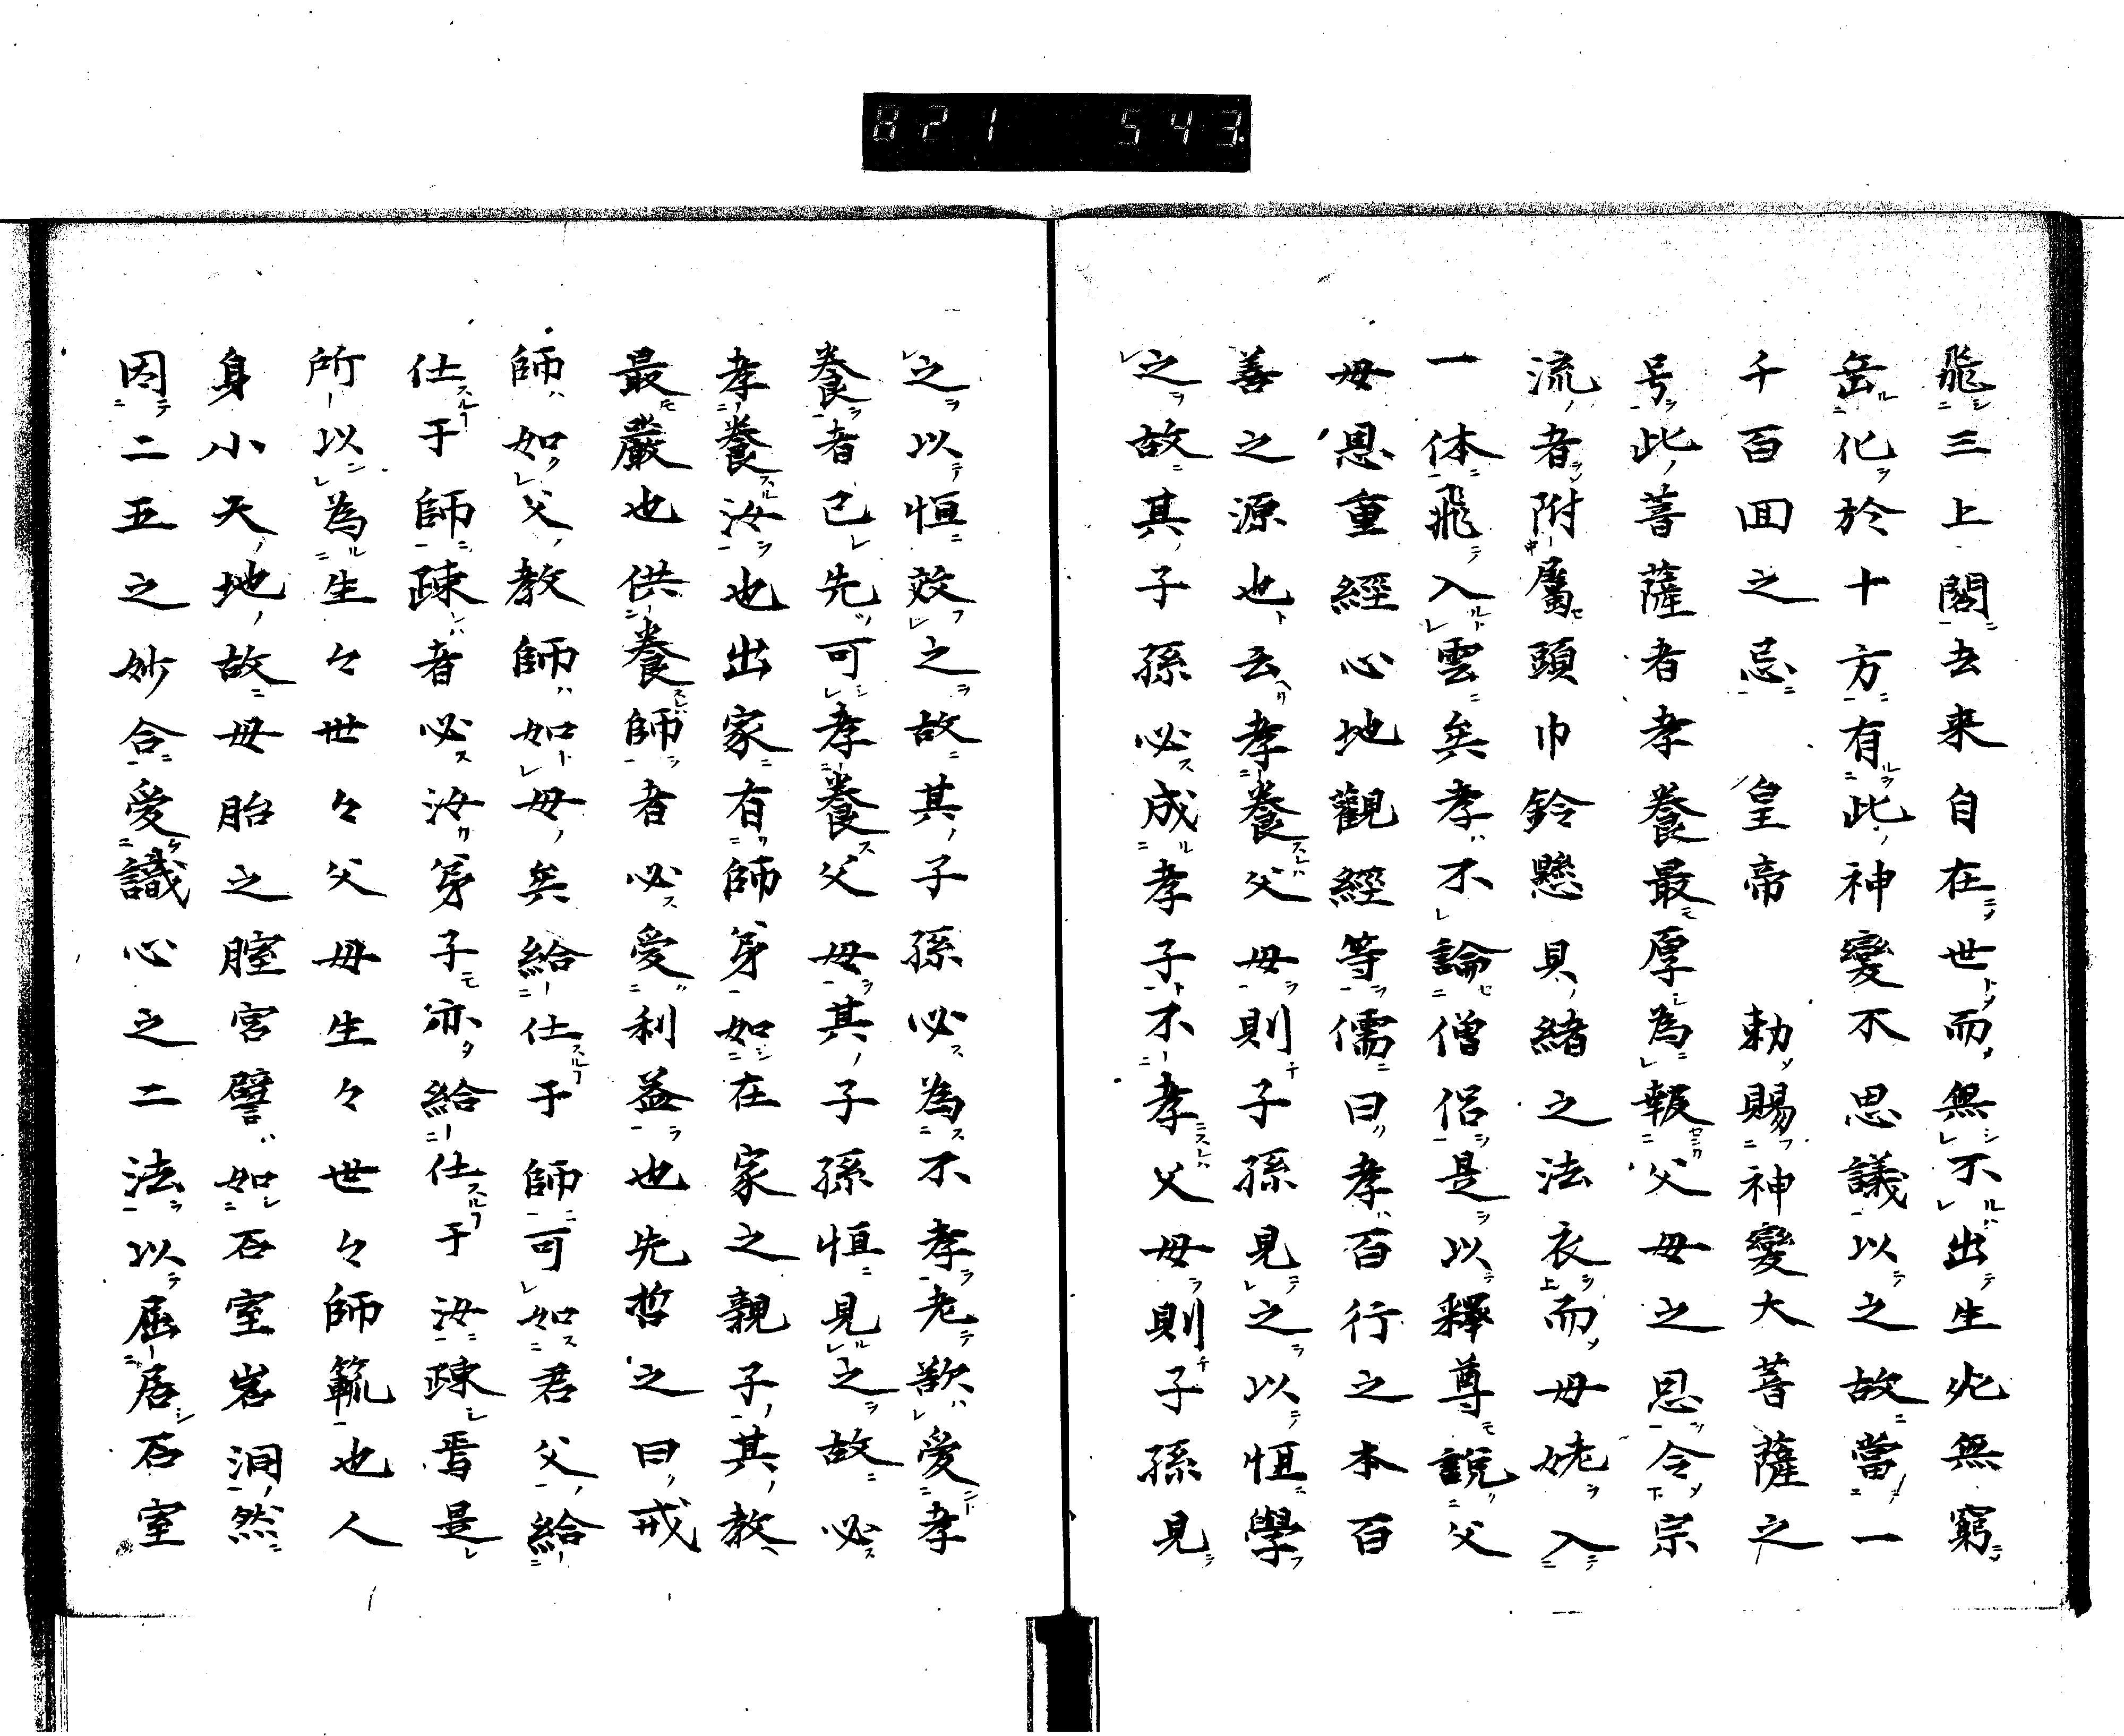 821 543
飛三上閣去来自在世而無不出生死無窮
岳化於十方有此神變不思議以之故當一
千百囬之忌 皇帝 勅賜神變大菩薩之
号此菩薩者孝養最厚為報父母之恩令宗
流者附属頭巾鈴懸具緒之法衣而母姥入
一体飛入雲矣孝不論僧侶是以釋尊説父
母恩重經心地觀經等儒曰孝百行之本百
善之源也云孝養父母則子孫見之以恒學
之故其子孫必成孝子不孝父母則子孫見
之以恒效之故其子孫必為不孝老欲愛孝
養者已先可孝養父母其子孫恒見之故必
孝養汝也出家有師弟如在家之親子其教
最嚴也供養師者必愛利益也先哲之曰戒
師如父教師如母矣給仕于師可如君父給
仕于師疎者必汝弟子亦給仕于汝疎焉是
所以為生々世々父母生々世々師範也人
身小天地故母胎之膣宮譬如石室岩洞然
因二五之妙合愛識心之二法以屈居石室